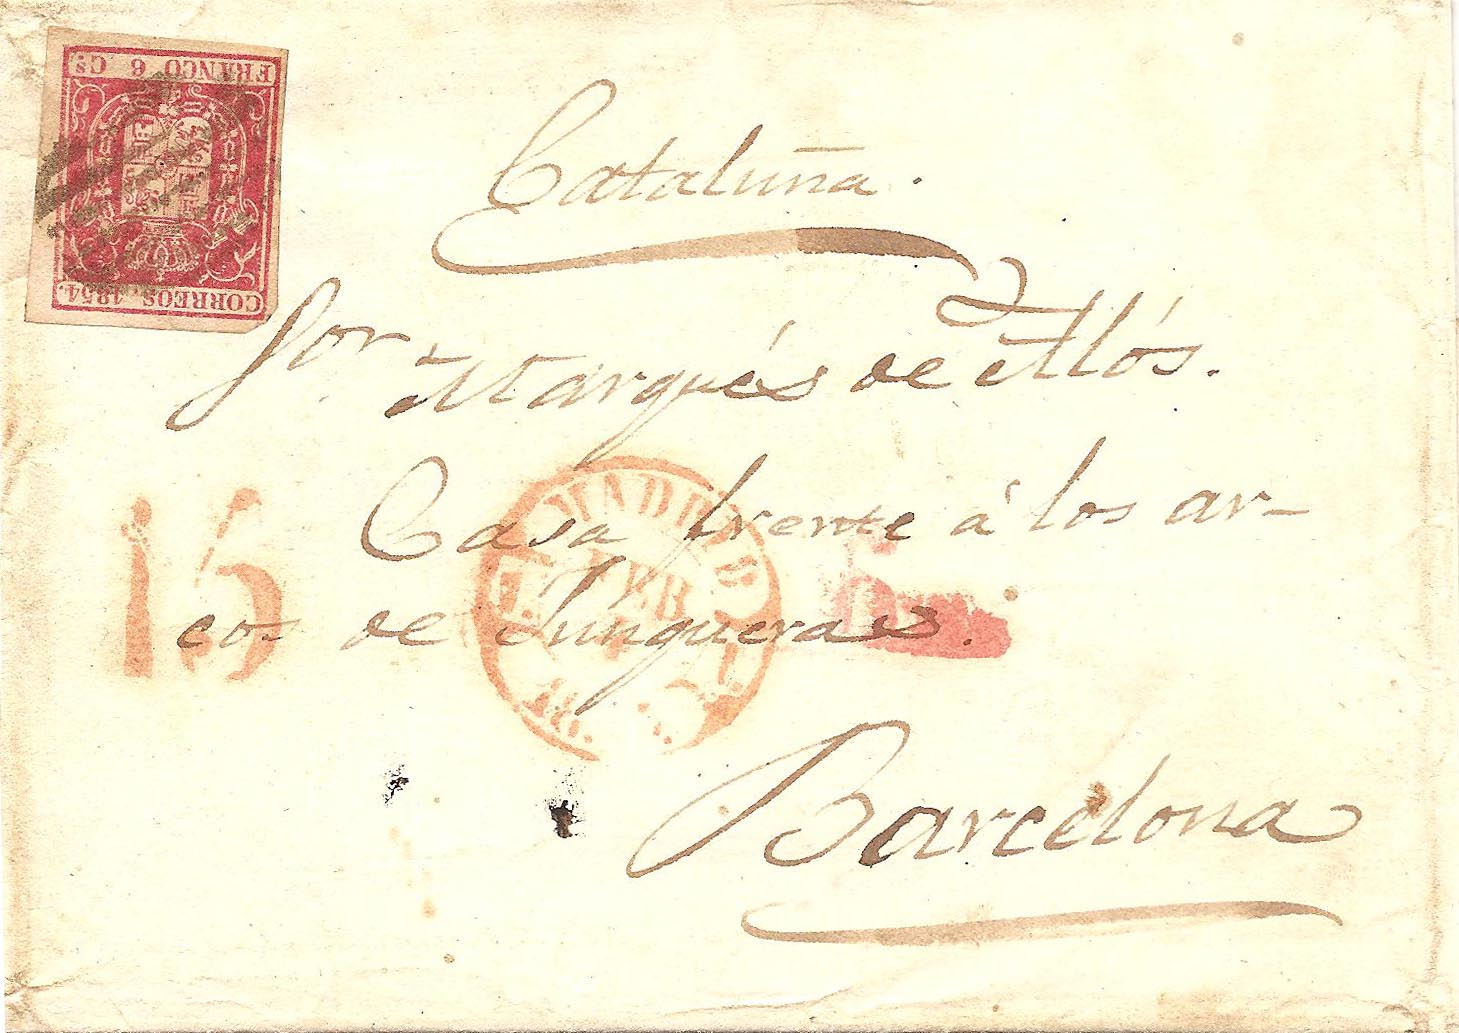 FRANCO 6 Cs
CORREOS 1854.
Cataluña.
Sor. Marqués de Alós.
Casa frente á los ar-
cos de Junqueras.
Barcelona
MADRID
FEB
15